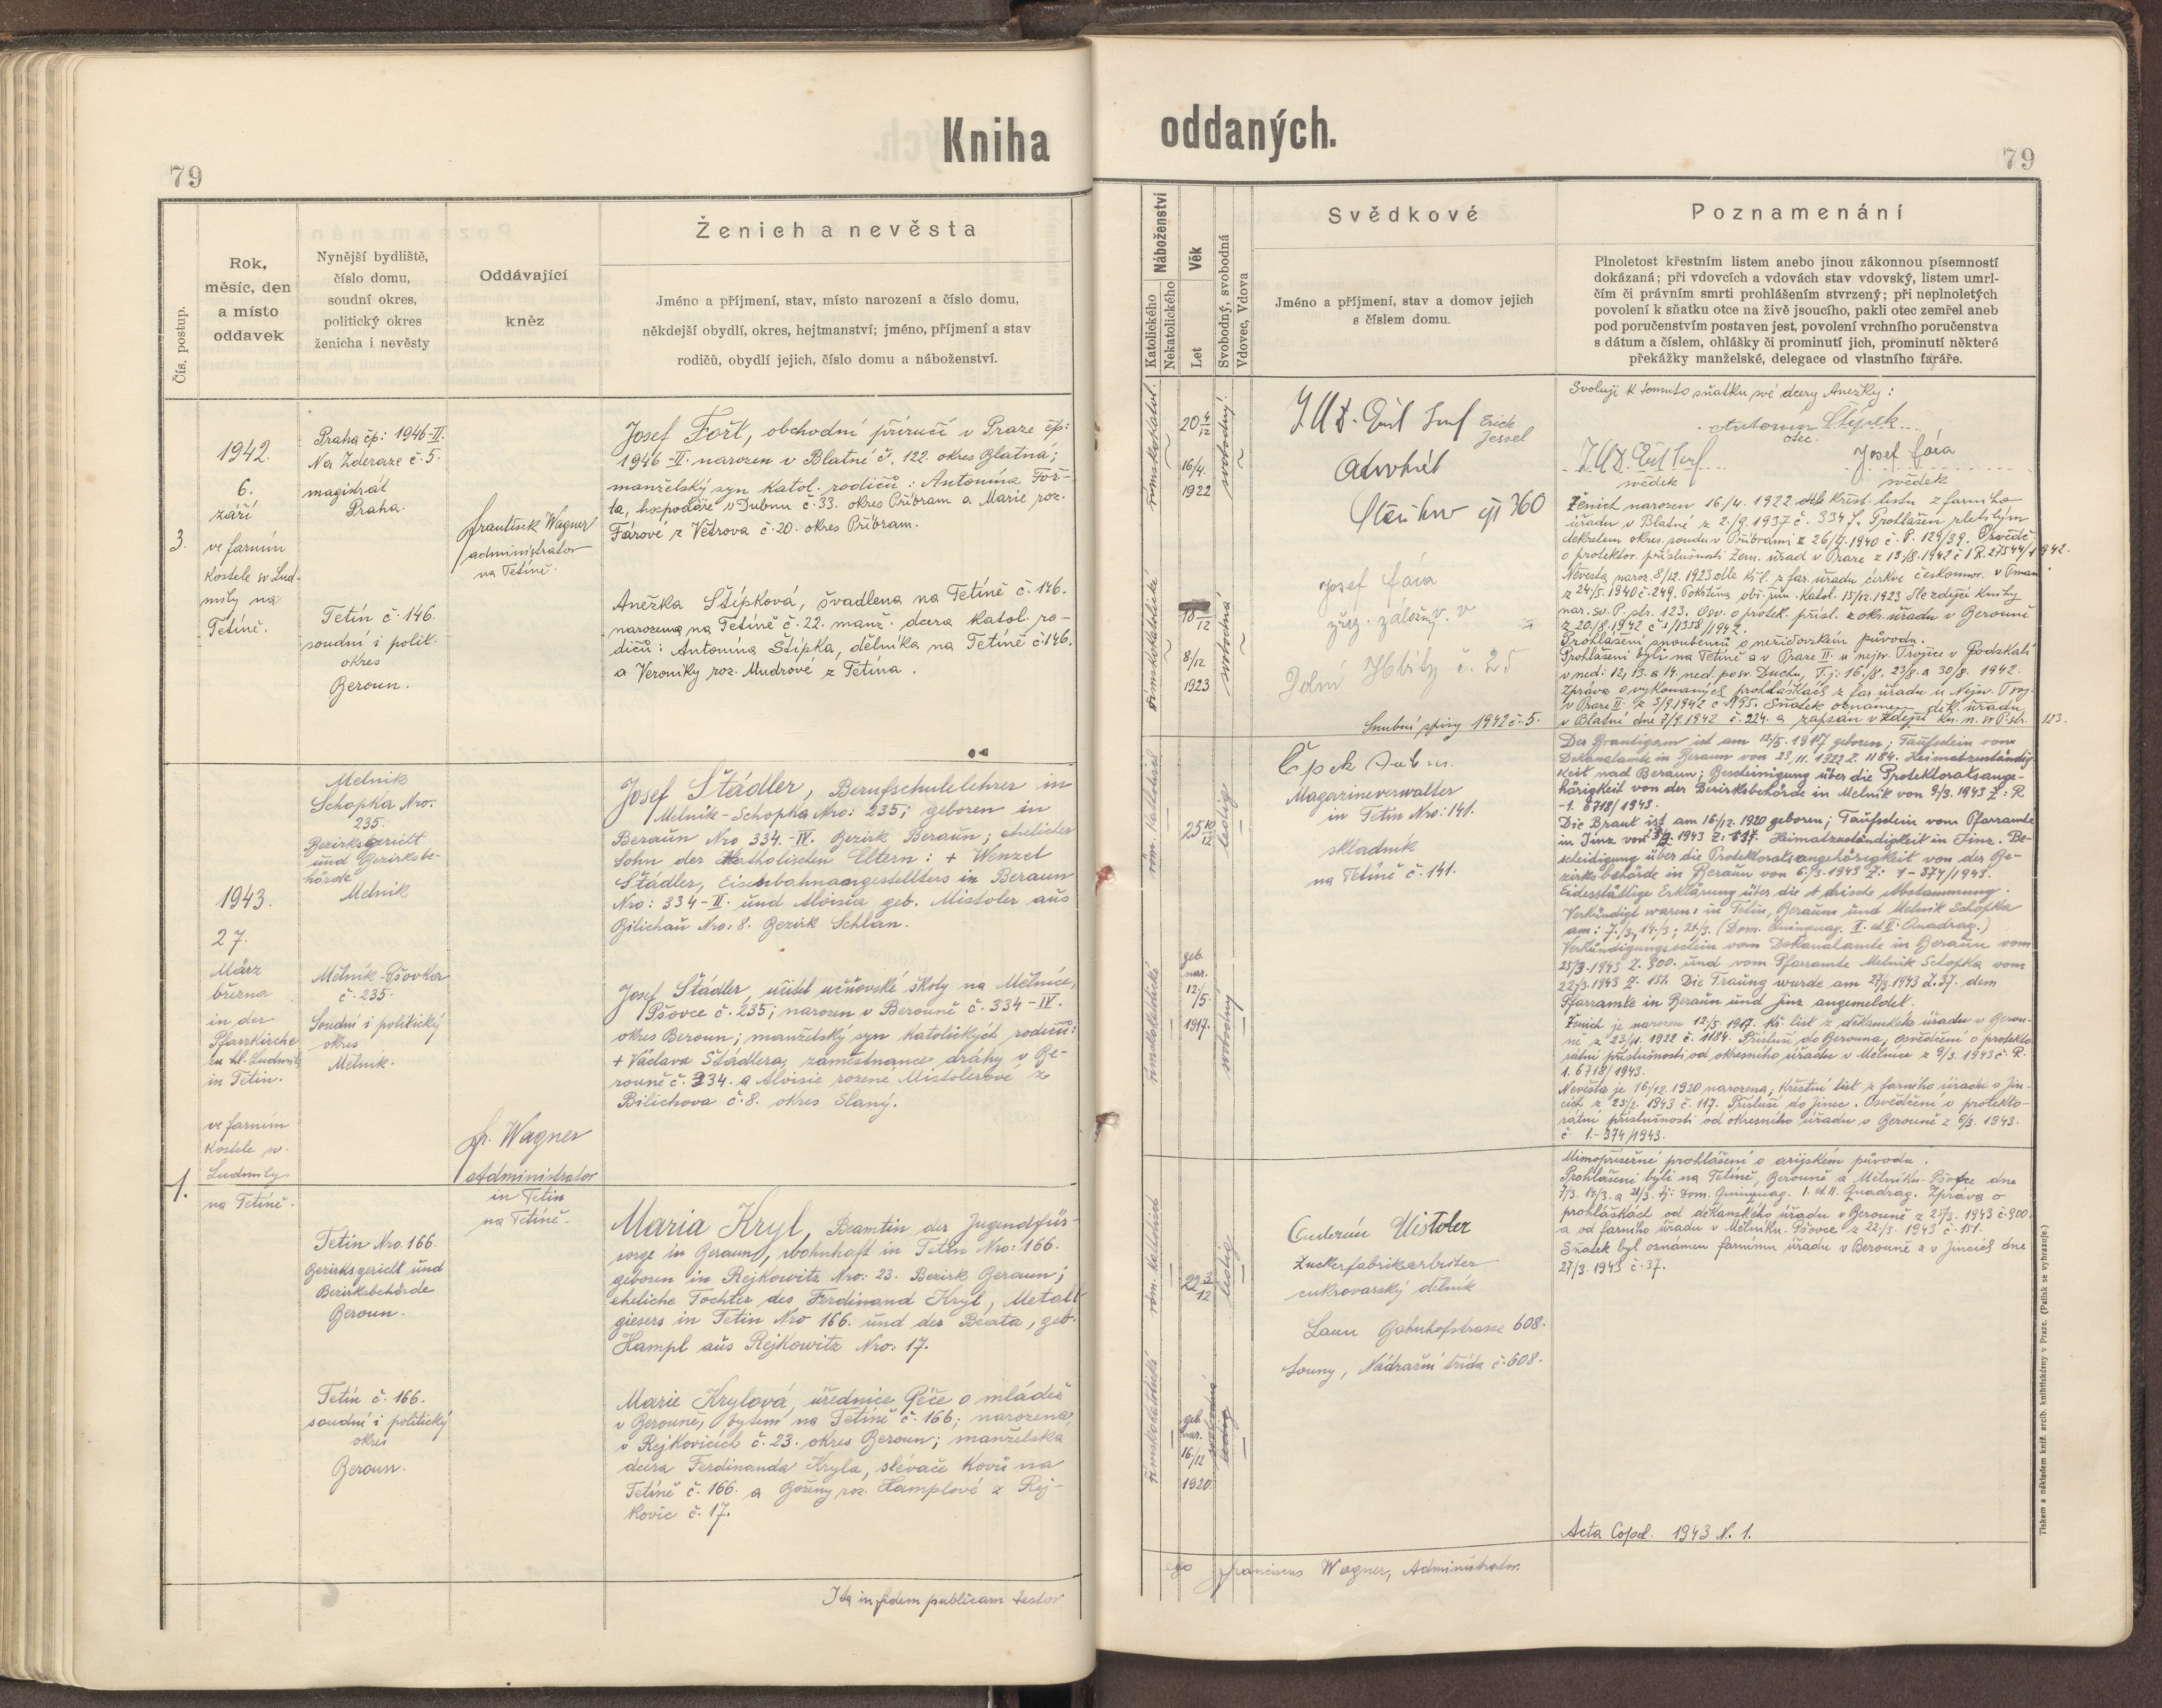 Kniha
oddaných.
79
79
Čís. postup.
Rok,
měsíc, den
a místo
oddavek
Nynější bydliště,
číslo domu,
soudní okres,
politický okres
ženicha i nevěsty
Oddávající
kněz
Ženich a nevěsta
Jméno a příjmení, stav, místo narození a číslo domu,
někdejší obydlí, okres, hejtmanství; jméno, příjmení a stav
rodičů, obydlí jejich, číslo domu a náboženství.
Náboženství
Katolického
Nekatolického
Věk
Let
Svobodný, svobodná
Vdovec, Vdova
Svědkové
Jméno a příjmení, stav a domov jejich
s číslem domu.
Poznamenání
Plnoletost křestním listem anebo jinou zákonnou písemností
dokázaná; při vdovcích a vdovách stav vdovský, listem umrl-
čím či právním smrti prohlášením stvrzený; při neplnoletých
povolení k sňatku otce na živě jsoucího, pakli otec zemřel aneb
pod poručenstvím postaven jest, povolení vrchního poručenstva
s dátum a číslem, ohlášky či prominutí jich, prominutí některé
překážky manželské, delegace od vlastního faráře.
3.
1942.
6.
září
ve farním
kostele sv Lud-
mily na
Tetíně.
Praha čp: 1946-II.
Na Zderaze č. 5.
magistrát
Praha.
Tetín č. 146.
soudní i polit.
okres
Beroun.
František Wagner
administrator
na Tetíně.
Josef Fořt, obchodní příručí v Praze čp:
1946-II. narozen v Blatné č. 122. okres Blatná;
manželský syn katol. rodičů: Antonína Foř-
ta, hospodáře v Dubnu č. 33. okres Příbram a Marie roz.
Fárové z Větrova č. 20. okres Příbram.
Anežka Štípková, švadlena na Tetíně č. 146.
narozena na Tetíně č. 22. manž. dcera katol. ro-
dičů: Antonína Štípka, dělníka na Tetíně č. 146.
a Veroniky roz. Mudrové z Tetína.
římskokatol.
20 4/12
16/4.
1922
svobodný.
římskokatolické
18 /12
8/12
1923
svobodná
JUD.
Erich
Jessel
advokát
čp 360
Josef Fára
zříz. záložny v
Dolní Hbity č. 25
Snubní spisy 1942 č. 5.
Svoluji k tomuto sňatku své dcery Anežky:
Antonín Štípek
otec.
JUD.
svědek
Josef Fára
svědek
Ženich narozen 16/4. 1922 dle křest. listu z farního
úřadu v Blatné z 2./9. 1937 č. 334 f. Prohlášen zletilým
dekretem okres. soudu v Příbrami z 26/4. 1940 č. P. 129/39. Osvědč.
o protektor. příslušnosti Zem. úřad v Praze z 13/8. 1942 č. I R. 27544/1942.
Nevěsta naroz. 8/12. 1923 dle kř. l. z far. úřadu církve českomor. v Tmani
z 24/5. 1940 č. 249. Pokřtěna obř. řím. katol. 15/12. 1923 dle zdejší knihy
nar. sv. P. str. 123. Osv. o protek. přísl. z okr. úřadu v Berouně
z 20./8. 1942 č. 1/1358/1942.
Prohlášení snoubenců o nežidovském původu.
Prohlášeni byli na Tetíně a v Praze II. u nejsv. Trojice v Podskalí
v neď: 12, 13. a 14. ned. po sv. Duchu, T. j: 16./8. 23/8. a 30/8. 1942.
Zpráva o vykonaných prohláškách z far. úřadu u Nejsv. Troj.
v Praze II. z 3/9. 1942 č. 1995. Sňatek oznámen děk. úřadu
v Blatné dne 7/9. 1942 č. 224. a zapsán v zdejší kn. n. sv P. str. 123.
1.
1943.
27.
März
března
in der
Pfarrkirche
zu hl. Ludmila
in Tetin.
ve farním
kostele sv.
Ludmily
na Tetíně.
Melnik
Schopka Nro:
235.
Bezirksgericht
und Bezirksbe-
hörde
Melnik
Mělník-Pšovka
č. 235.
Soudní i politický
okres
Mělník.
Fr. Wagner
Administrator
in Tetin
na Tetíně.
Josef Štádler, Berufschulelehrer in
Melnik-Schopka Nro: 235; geboren in
Beraun Nro 334-IV. Bezirk Beraun; ehelicher
Sohn der Katholischen Eltern: + Wenzel
Štádler, Eisenbahnangestellters in Beraun
Nro: 334-II. und Aloisia geb. Mistoler aus
Bilichau Nro: 8. Bezirk Schlan.
Josef Štádler, učitel učňovské školy na Mělníce,
Pšovce č. 235; narozen v Berouně č. 334-IV.
okres Beroun; manželský syn katolických rodičů:
+ Václava Štádlera, zaměstnance dráhy v Be-
rouně č. 334. a Aloisie rozené Mistolerové z
Bilichova č. 8. okres Slaný.
Tetin Nro. 166.
Bezirksgericht und
Bezirksbehörde
Beroun.
Tetín č. 166.
soudní i politický
okres
Beroun.
Maria Kryl, Beamtin der Jugendfür-
sorge in Beraun, wohnhaft in Tetin Nro: 166.
geboren in Rejkowitz Nro: 23. Bezirk Beraun;
eheliche Tochter des Ferdinand Kryl, Metall-
giesers in Tetin Nro 166. und der Beata, geb.
Hampl aus Rejkowitz Nro. 17.
Marie Krylová, úřednice Péče o mládež
v Berouně, bytem na Tetíně č. 166; narozena
v Rejkovicích č. 23. okres Beroun; manželská
dcera Ferdinanda Kryla, slévače kovů na
Tetíně č. 166. a Boženy roz. Hamplové z Rej-
kovic č. 17.
röm. katholisch
25 10/12
ledig
římskokatolické
geb.
nar.
12./5.
1917.
svobodný
röm. katholisch
22 3/12
ledig
římskokatolické
geb.
nar.
16./12
1920.
svobodná
ledig
Magazineverwalter
in Tetin Nro: 141.
skladník
na Tetíně č. 141.
Mistoler
Zuckerfabrikarbeiter
cukrovarský dělník
Laun Bahnhofstrasse 608.
Louny, Nádražní třída č. 608.
Der Brautigam ist am 12/5. 1917 geboren; Taufschein vom
Dekanalamte in Beraun von 23. 11. 1922 Z. 1184. Heimatzuständig-
keit nach Beraun; Bescheinigung über die Protektoratsange-
hörigkeit von der Bezirksbehörde in Melnik von 9/3. 1943 Z: R
-1. 6718/1943.
Die Braut ist am 16/12. 1920 geboren; Taufschein vom Pfarramte
in Jinz von 1943 Z: 117. Heimatzuständigkeit in Jinz. Be-
scheidigung über die Protektoratsangehörigkeit von der Be-
zirksbehörde in Beraun von 6/3. 1943 Z: 1-374/1943.
Eidesstättige Erklärung über die Arische Abstammung.
Verkündigt waren: in Tetin, Beraun und Melnik Schopka
am: 7./3, 14./3; 21/3. (Dom. Quinquag. I. et II. Quadrag.)
Verkündigungsschein vom Dekanalamte in Beraun vom
25/3. 1943 Z. 300. und vom Pfarramte Melnik Schopka vom
22/3. 1943 Z: 151. Die Trauung wurde am 27/3. 1943 Z. 37. dem
Pfarramte in Beraun und Jinz angemeldet.
Ženich je narozen 12/5. 1917. Kř. list z děkanského úřadu v Berou-
ně z 23/11. 1922 č. 1184. Přísluší do Berouna, osvědčení o protekto-
rátní příslušnosti od okresního úřadu v Mělníce z 9/3. 1943 č. R.
1. 6718/1943.
Nevěsta je 16/12. 1920 narozena; Křestní list z farního úřadu v Jin-
cích z 25/2. 1943 č. 117. Přísluší do Jinec. Osvědčení o protekto-
rátní příslušnosti od okresního úřadu v Berouně z 6/3. 1943.
č. 1.-374/1943.
Mimopřísežné prohlášení o arijském původu.
Prohlášeni byli na Tetíně, Berouně a Mělníku-Pšovce dne
7/3. 14/3. a 21/3. tj: Dom. Quinquag. I. et II. Quadrag. Zpráva o
prohláškách od děkanského úřadu v Berouně z 25/3. 1943 č. 300.
a od farního úřadu v Mělníku-Pšovce z 22/3. 1943 č. 151.
Sňatek byl oznámen farnímu úřadu v Berouně a v Jincích dne
27/3. 1943 č. 37.
Acta Copul. 1943 N. 1.
Ita in fidem publicam testor
ego Franciscus Wagner, Administrator.
Tiskem a nákladem kníž. arcib. knihtiskárny v Praze. (Patisk se vyhrazuje.)